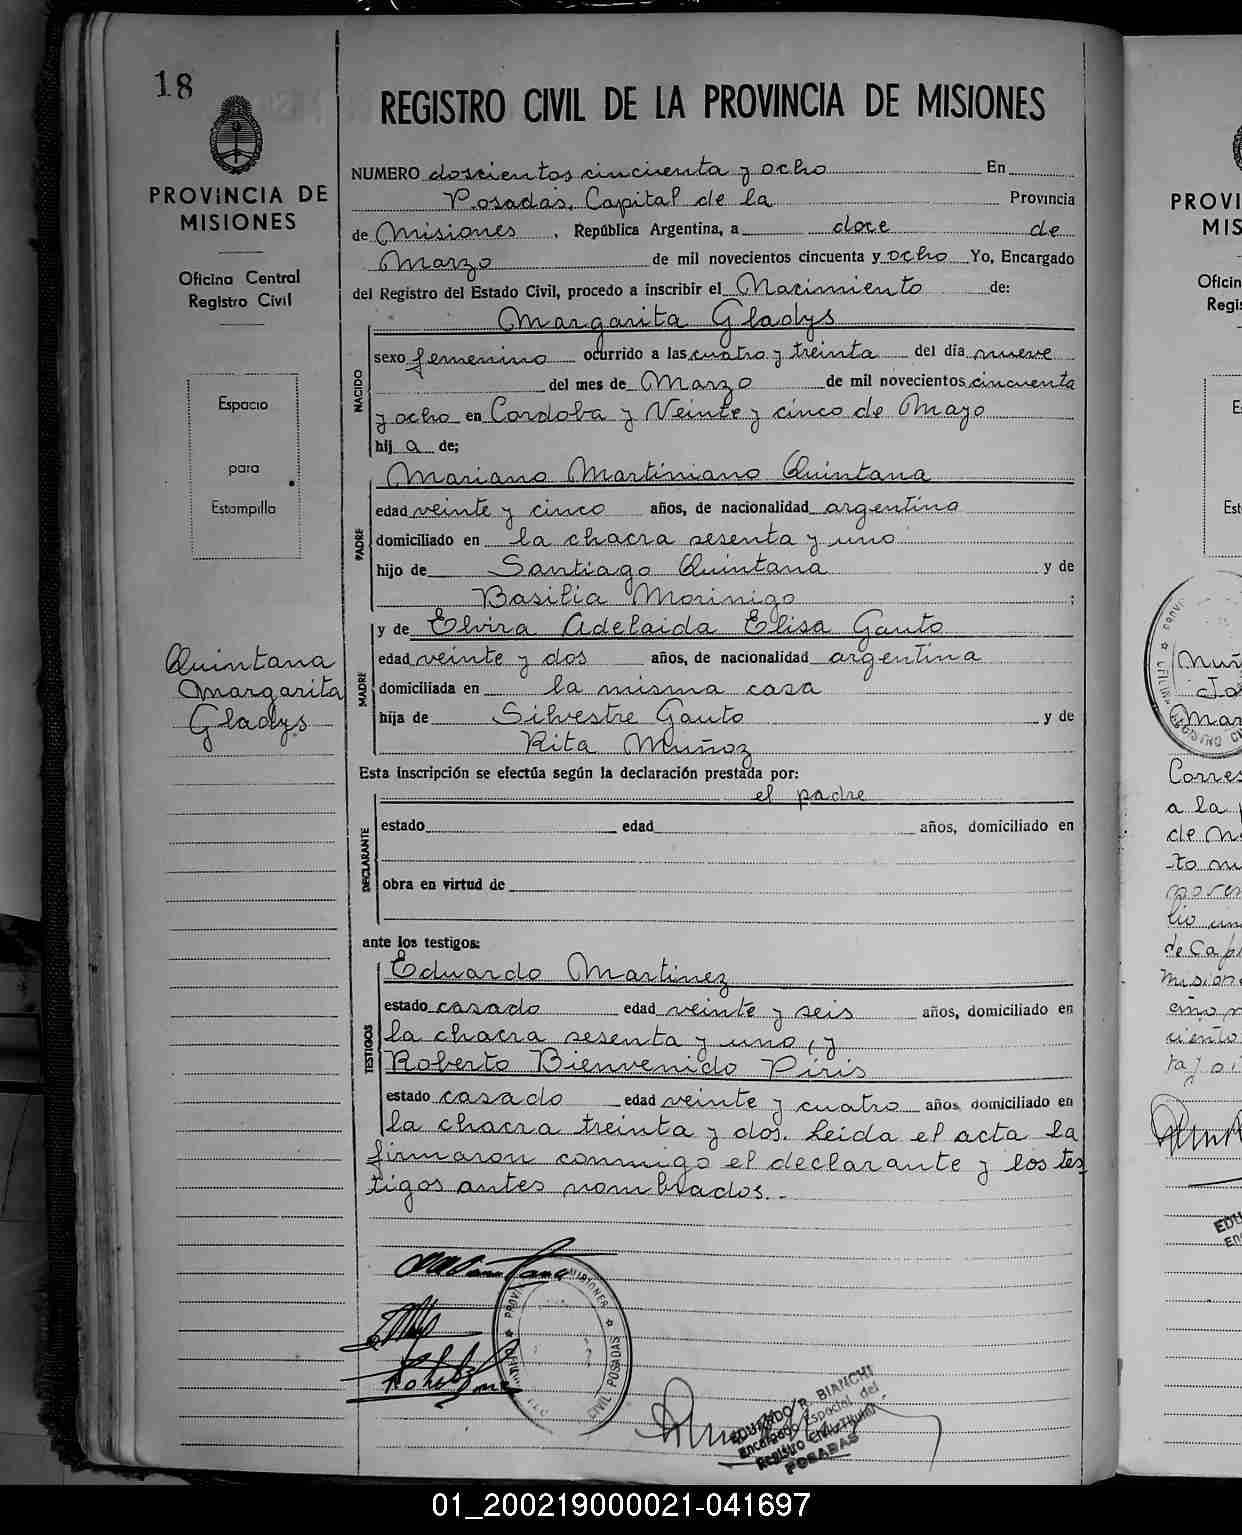 18
PROVINCIA DE
MISIONES
Oficina Central
Registro Civil
Espacio
para
Estampilla
Quintana
Margarita
Gladys
REGISTRO CIVIL DE LA PROVINCIA DE MISIONES
NUMERO doscientos cincuenta y ocho En
Posadas, Capital de la Provincia
de Misiones, República Argentina, a doce de
Marzo de mil novecientos cincuenta y ocho Yo, Encargado
del Registro del Estado Civil, procedo a inscribir el Nacimiento de:
Margarita Gladys
NACIDO
sexo femenino ocurrido a las cuatro y treinta del día nueve
del mes de Marzo de mil novecientos cincuenta
y ocho en Cordoba y Veinte y cinco de Mayo
hij a de;
Mariano Martiniano Quintana
PADRE
edad veinte y cinco años, de nacionalidad argentino
domiciliado en la chacra sesenta y uno
hijo de Santiago Quintana y de
Basilia Morinigo ;
y de Elvira Adelaida Elisa Gauto
MADRE
edad veinte y dos años, de nacionalidad argentina
domiciliada en la misma casa
hija de Silvestre Gauto y de
Rita Muñoz
Esta inscripción se efectúa según la declaración prestada por:
el padre
DECLARANTE
estado edad años, domiciliado en
obra en virtud de
ante los testigos:
TESTIGOS
Eduardo Martinez
estado casado edad veinte y seis años, domiciliado en
la chacra sesenta y uno, y
Roberto Bienvenido Piris
estado casado edad veinte y cuatro años, domiciliado en
la chacra treinta y dos. Leida el acta la
firmaron conmigo el declarante y los tes
tigos antes nombrados.-
CIVIL POSADAS
EDUARDO R. BIANCHI
Encargado Espacial del
Registro Civil Titular
POSADAS
PROVI
MIS
Oficin
Regis
E
Est
Muñ
Mar
Corres
a la
de
01_200219000021-041697